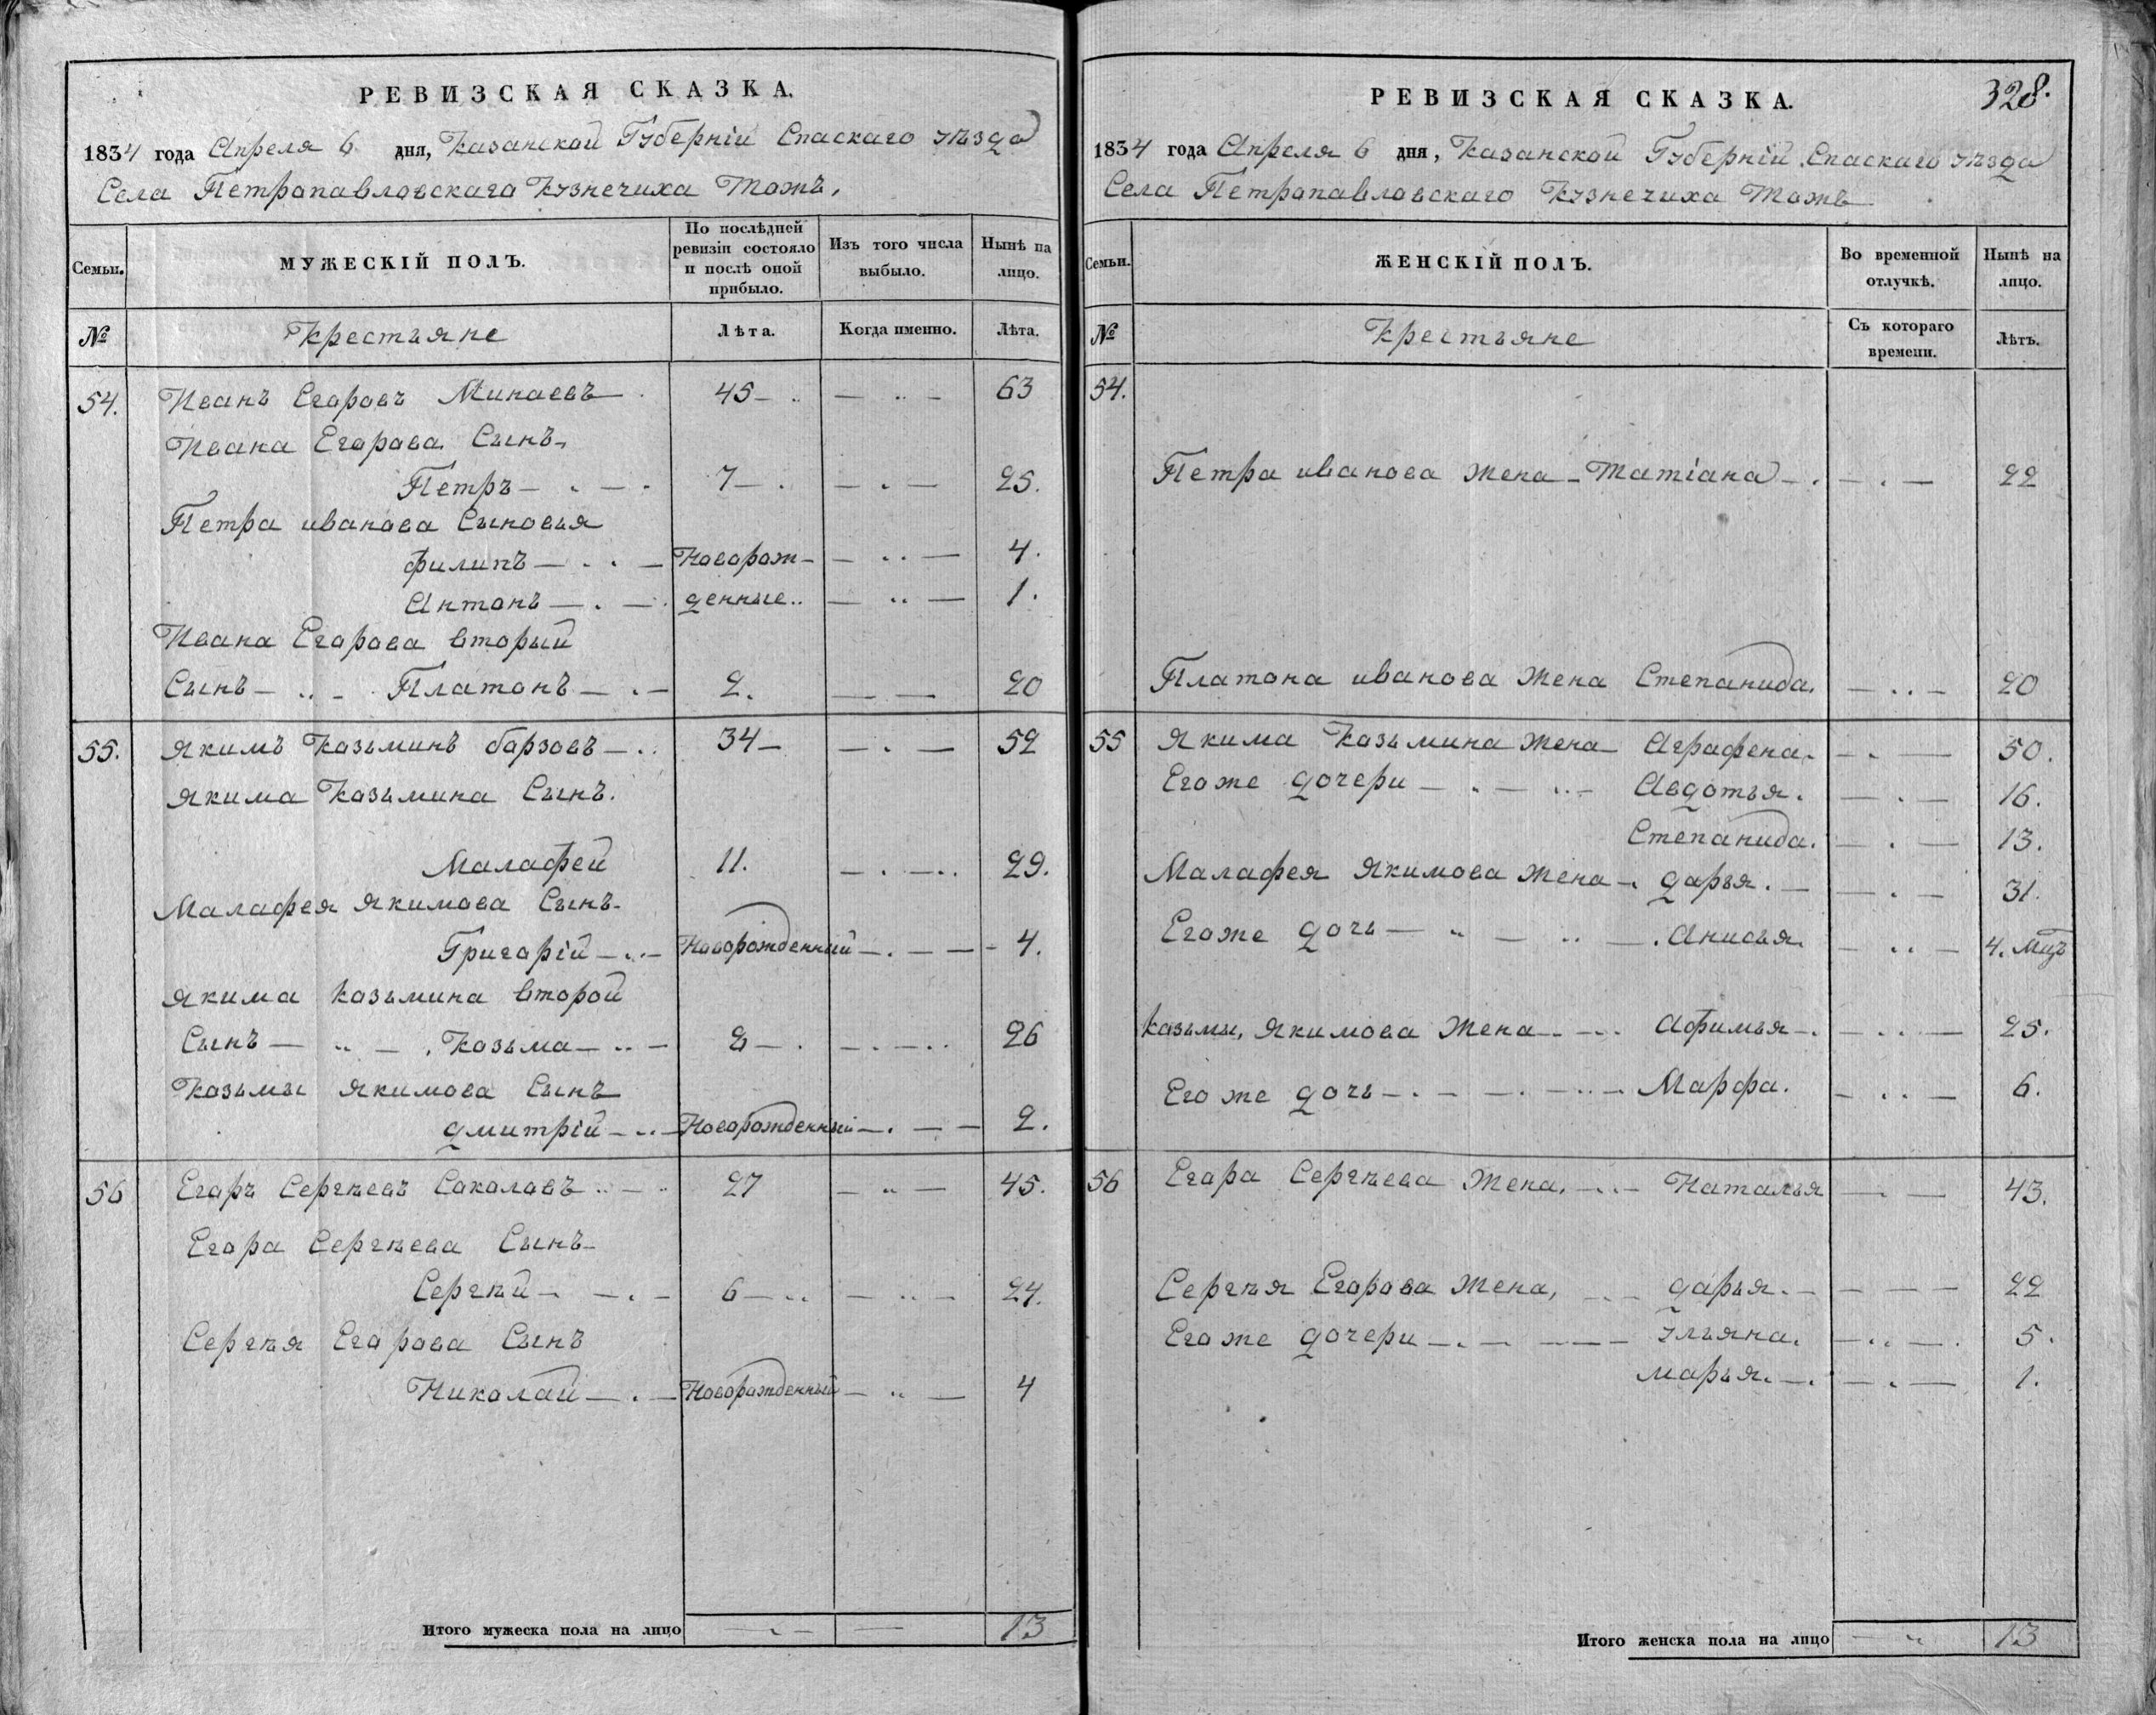 РЕВИЗСКАЯ СКАЗКА.
1834 года Апреля 6 дня, Казанской Губерніи Спаскаго уѣзда
Села Петрапавловскаго Кузнечиха тожъ,
Семьи. МУЖЕСКІЙ ПОЛЪ. По послѣдней ревизіи состояло и послѣ оной прибыло. Изъ того числа выбыло. Нынѣ на лицо.
№ Крестьяне Лѣта. Когда именно. Лѣта.
54. Иванъ Егаровъ Минаевъ 45 63
Ивана Егарова Сынъ
Петръ 7 25.
Петра иванова Сыновья
филипъ Новорож- 4.
Антонъ денные 1.
Ивана Егарова вторый
Сынъ Платонъ 2. 20
55. Якимъ Казьминъ барзовъ 34 52
Якима Казьмина Сынъ.
Малафей 11. 29.
Малафея Якимова Сынъ
Григарій Новорожденный 4.
Якима Казьмина второй
Сынъ Казьма 8 26
Казьмы Якимова Сынъ
дмитрій Новорожденный 2.
56 Егаръ Сергѣевъ Сакаловъ 27 45.
Егора Сергѣева Сынъ
Сергѣй 6 24.
Сергѣя Егарова Сынъ
Николай Новорожденный 4
Итого мужеска пола на лицо 13
328.
РЕВИЗСКАЯ СКАЗКА.
1834 года Апреля 6 дня, Казанской Губерніи Спаскаго уѣзда
Села Петрапавловскаго Кузнечиха тожъ
Семьи. ЖЕНСКІЙ ПОЛЪ. Во временной отлучкѣ. Нынѣ на лицо.
№ Крестьяне Съ котораго времени. Лѣтъ.
54.
Петра иванова жена Татіана 22
Платона иванова жена Степанида. 20
55 Якима Казьмина жена Аграфена. 50.
Егоже дочери Авдотья. 16.
Степанида. 13.
Малафея Якимова жена дарья. 31.
Егоже дочь Анисья. 4. Мцъ
Казьмы, Якимова жена Афимья 25.
Егоже дочь Марфа. 6.
56 Егора Сергѣева жена. Наталья 43.
Сергѣя Егорова жена, дарья. 22
Егоже дочери Ульяна. 5.
марья. 1.
Итого женска пола на лицо 13